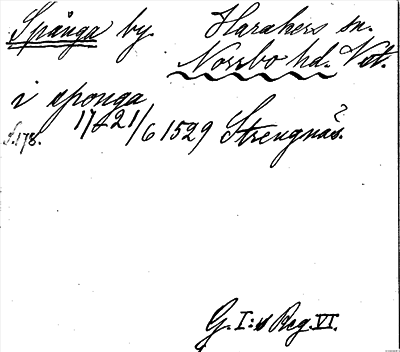 Spånga by. Harakers sn.
Norrbo hd. Vst.
i sponga
s. 178. 17&21/6 1529 Strengnäs.?
G. I:s Reg. VI.